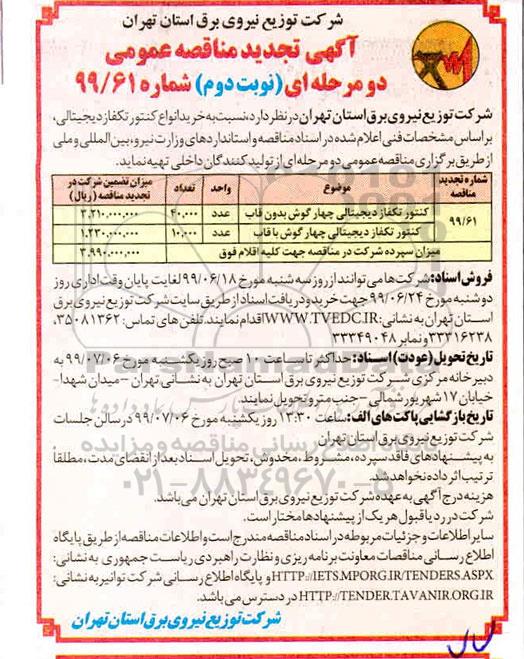 شرکت توزیع نیروی برق استان تهران
آگهی تجدید مناقصه عمومی
دو مرحله ای (نوبت دوم) شماره ۹۹/۶۱
شرکت توزیع نیروی برق استان تهران در نظر دارد، نسبت به خرید انواع کنتور تکفاز دیجیتالی،
بر اساس مشخصات فنی اعلام شده در اسناد مناقصه و استانداردهای وزارت نیرو، بین المللی و ملی
از طریق برگزاری مناقصه عمومی دو مرحله ای از تولید کنندگان داخلی تهیه نماید.
شماره تجدید مناقصه موضوع واحد تعداد میزان تضمین شرکت در تجدید مناقصه (ریال)
۹۹/۶۱ کنتور تکفاز دیجیتالی چهار گوش بدون قاب عدد ۴۰,۰۰۰ ۳,۲۱۰,۰۰۰,۰۰۰
کنتور تکفاز دیجیتالی چهار گوش با قاب عدد ۱۰,۰۰۰ ۱,۲۳۰,۰۰۰,۰۰۰
میزان سپرده شرکت در مناقصه جهت کلیه اقلام فوق ۳,۹۹۰,۰۰۰,۰۰۰
فروش اسناد: شرکت ها می توانند از روز سه شنبه مورخ ۹۹/۰۶/۱۸ لغایت پایان وقت اداری روز
دو شنبه مورخ ۹۹/۰۶/۲۴ جهت خرید و دریافت اسناد از طریق سایت شرکت توزیع نیروی برق
استان تهران به نشانی: WWW.TVEDC.IR اقدام نمایند. تلفن های تماس: ۳۵۰۸۱۳۶۲،
۳۳۳۱۶۲۳۸ و نمابر ۳۳۳۴۹۰۴۸
تاریخ تحویل (عودت) اسناد: حداکثر تا ساعت ۱۰ صبح روز یکشنبه مورخ ۹۹/۰۷/۰۶ به
دبیرخانه مرکزی شرکت توزیع نیروی برق استان تهران به نشانی تهران - میدان شهدا-
خیابان ۱۷ شهریور شمالی - جنب مترو تحویل نمایند.
تاریخ بازگشایی پاکت های الف: ساعت ۱۳:۳۰ روز یکشنبه مورخ ۹۹/۰۷/۰۶ در سالن جلسات
شرکت توزیع نیروی برق استان تهران
به پیشنهادهای فاقد سپرده، مشروط، مخدوش، تحویل اسناد بعد از انقضای مدت، مطلقاً
ترتیب اثر داده نخواهد شد.
هزینه درج آگهی به عهده شرکت توزیع نیروی برق استان تهران می باشد.
شرکت در رد یا قبول هر یک از پیشنهادها مختار است.
سایر اطلاعات و جزئیات مربوطه در اسناد مناقصه مندرج است و اطلاعات مناقصه از طریق پایگاه
اطلاع رسانی مناقصات معاونت برنامه ریزی و نظارت راهبردی ریاست جمهوری به نشانی:
HTTP://IETS.MPORG.IR/TENDERS.ASPX و پایگاه اطلاع رسانی شرکت توانیر به نشانی:
HTTP://TENDER.TAVANIR.ORG.IR در دسترس می باشد.
شرکت توزیع نیروی برق استان تهران
ParsNamadData
۰۲۱-۸۸۳۴۹۶۷۰-۵